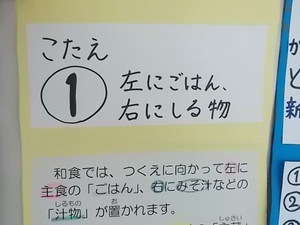 こたえ
① 左にごはん、
右にしる物
和食では、つくえに向かって左に
主食の「ごはん」、右にみそ汁などの
しるもの お
「汁物」が置かれます。
しゅさい
か
と
新
①
②